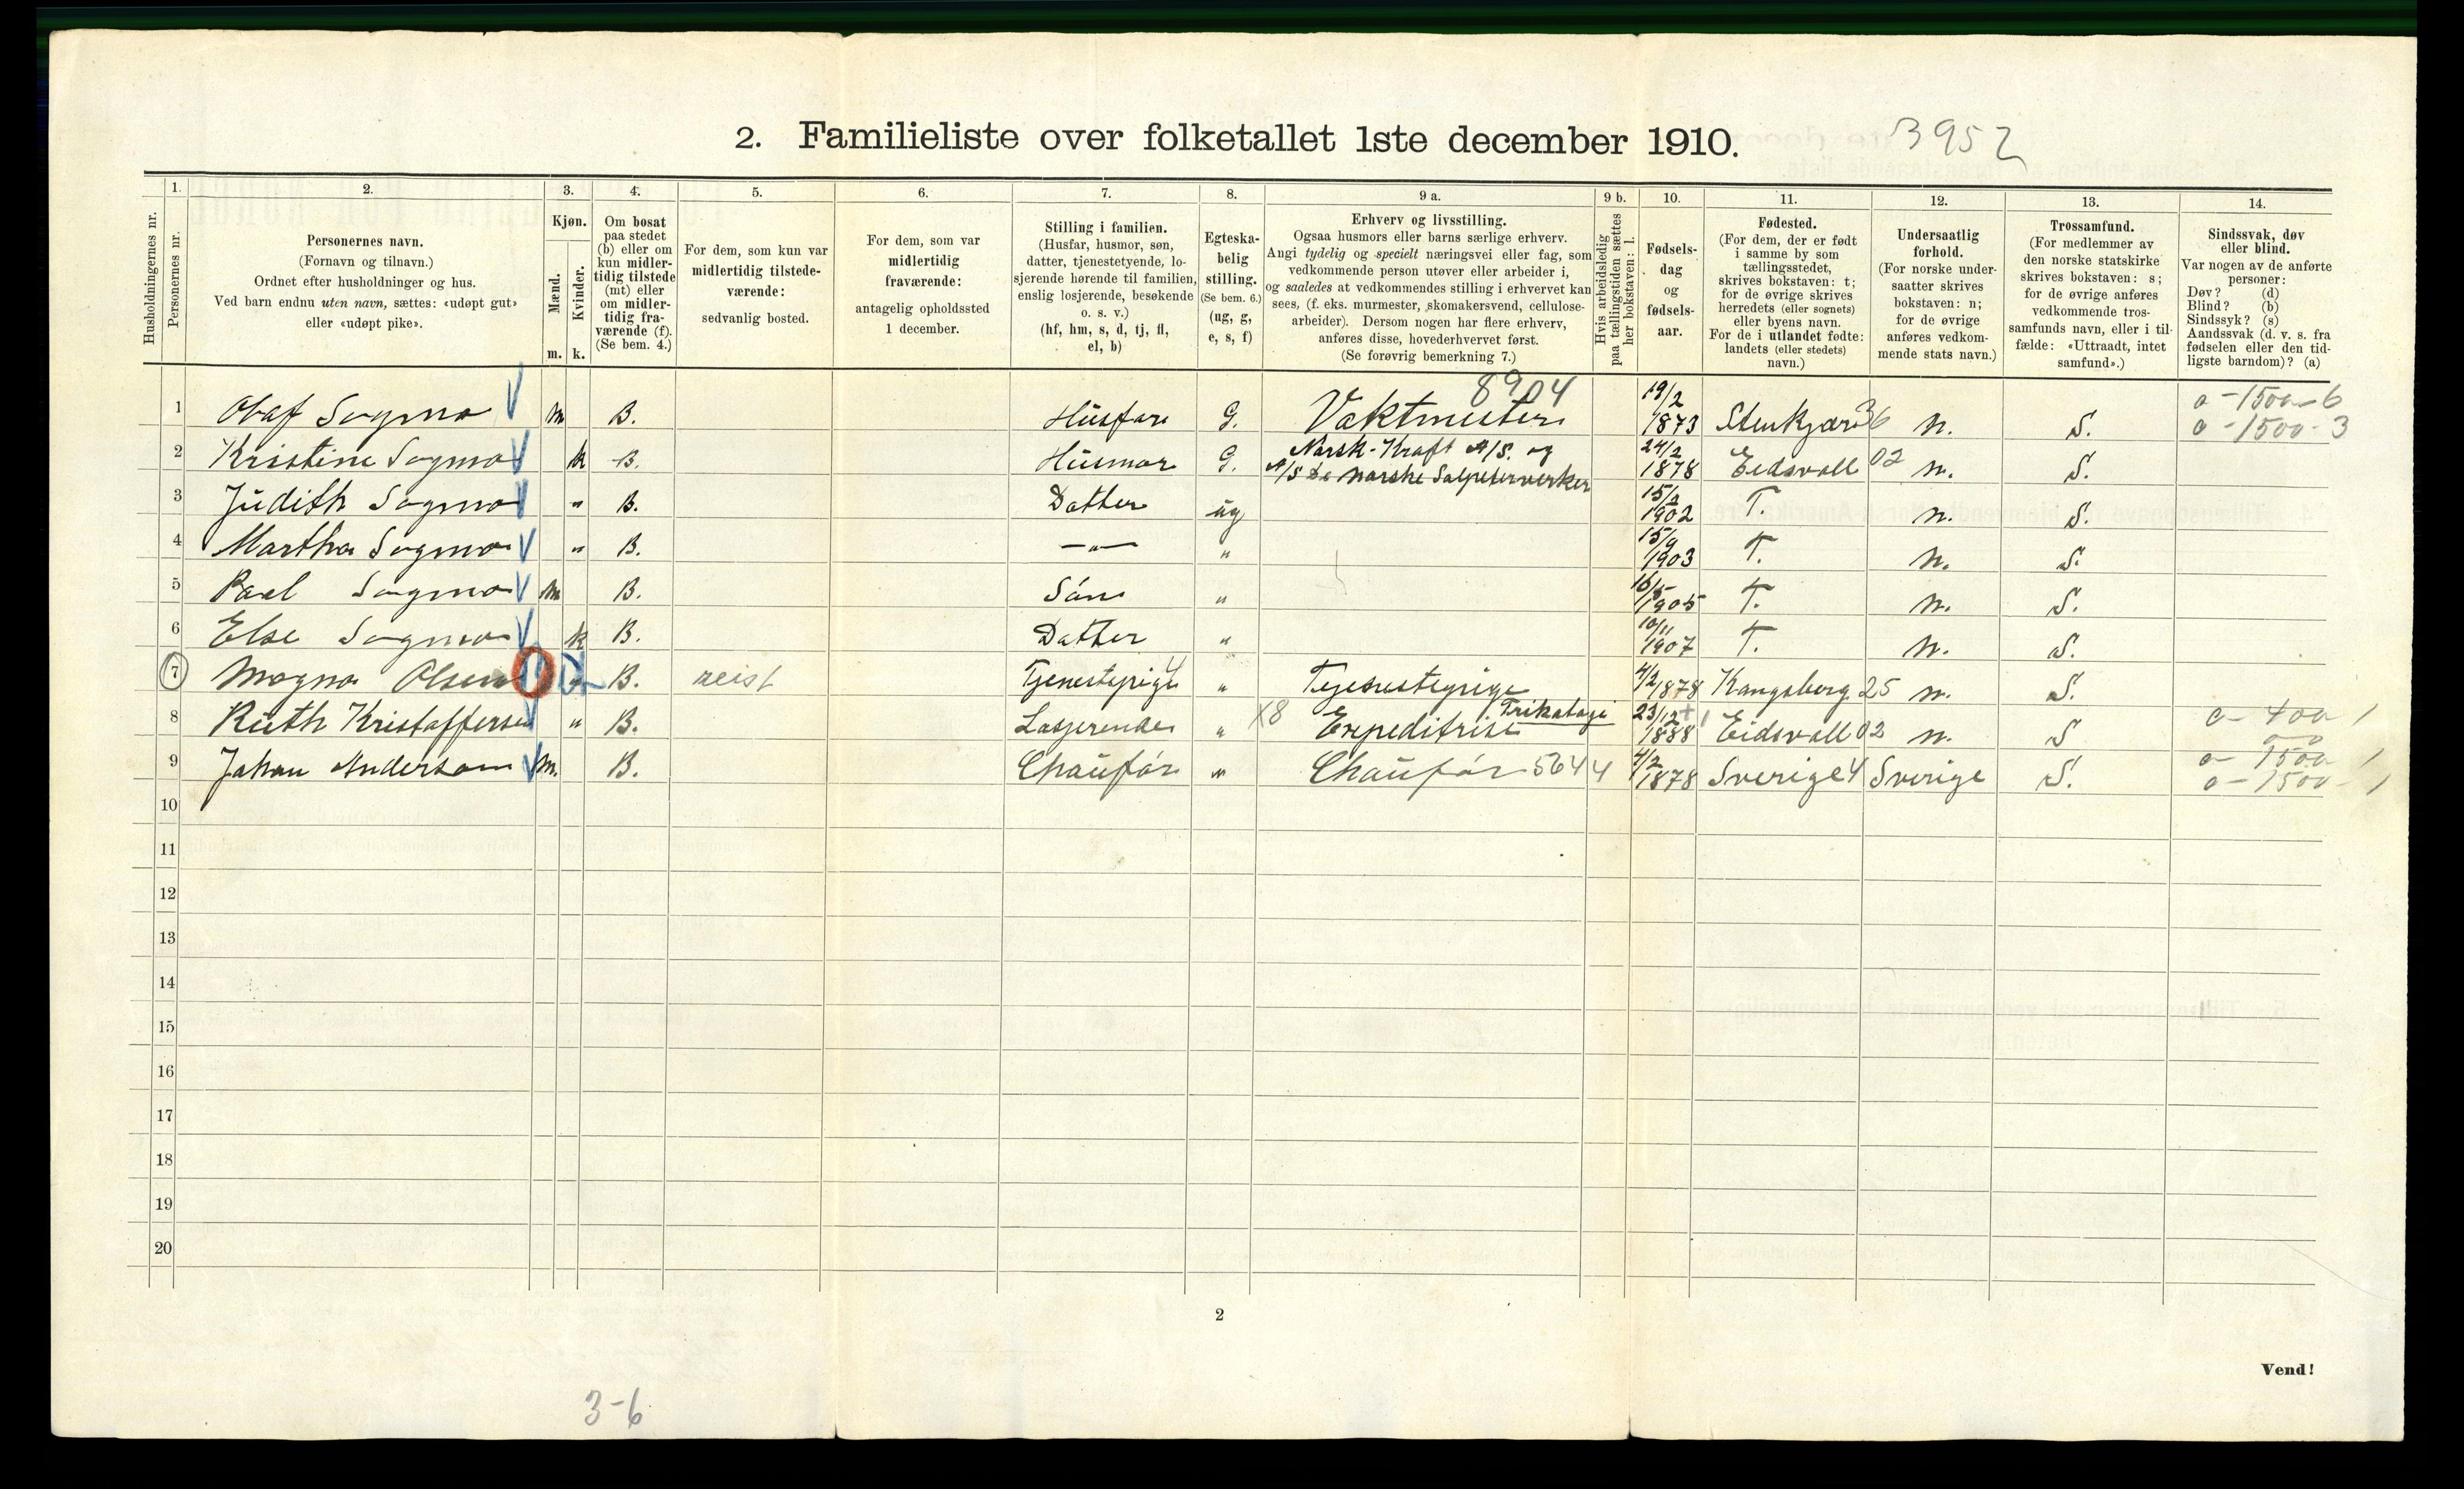 2. Familieliste over folketallet 1ste december 1910. 3952
Husholdningernes nr.
1. Personernes nr.
2. Personernes navn.
(Fornavn og tilnavn.)
Ordnet efter husholdninger og hus.
Ved barn endnu uten navn, sættes: «udøpt gut»
eller «udøpt pike».
3. Kjøn.
Mænd. m.
Kvinder. k.
4. Om bosat
paa stedet
(b) eller om
kun midler-
tidig tilstede
(mt) eller
om midler-
tidig fra-
værende (f).
(Se bem. 4.)
5. For dem, som kun var
midlertidig tilstede-
værende:
sedvanlig bosted.
6. For dem, som var
midlertidig
fraværende:
antagelig opholdssted
1 december.
7. Stilling i familien.
(Husfar, husmor, søn,
datter, tjenestetyende, lo-
sjerende hørende til familien,
enslig losjerende, besøkende
o. s. v.)
(hf, hm, s, d, tj, fl,
el, b)
8. Egteska-
belig
stilling.
(Se bem. 6.)
(ug, g,
e, s, f)
9 a. Erhverv og livsstilling.
Ogsaa husmors eller barns særlige erhverv.
Angi tydelig og specielt næringsvei eller fag, som
vedkommende person utøver eller arbeider i,
og saaledes at vedkommendes stilling i erhvervet kan
sees, (f. eks. murmester, skomakersvend, cellulose-
arbeider). Dersom nogen har flere erhverv,
anføres disse, hovederhvervet først.
(Se forøvrig bemerkning 7.)
9 b. Hvis arbeidsledig
paa tællingstiden sættes
her bokstaven: l.
10. Fødsels-
dag
og
fødsels-
aar.
11. Fødested.
(For dem, der er født
i samme by som
tællingsstedet,
skrives bokstaven: t;
for de øvrige skrives
herredets (eller sognets)
eller byens navn.
For de i utlandet fødte:
landets (eller stedets)
navn.)
12. Undersaatlig
forhold.
(For norske under-
saatter skrives
bokstaven: n;
for de øvrige
anføres vedkom-
mende stats navn.)
13. Trossamfund.
(For medlemmer av
den norske statskirke
skrives bokstaven: s;
for de øvrige anføres
vedkommende tros-
samfunds navn, eller i til-
fælde: «Uttraadt, intet
samfund».)
14. Sindssvak, døv
eller blind.
Var nogen av de anførte
personer:
Døv? (d)
Blind? (b)
Sindssyk? (s)
Aandssvak (d. v. s. fra
fødselen eller den tid-
ligste barndom)? (a)
1 Olaf Sogmo m B. Husfar G. 8904 Vaktmester 19/2 1873 Stenkjær 36 n. S. a-1500-6
a-1500-3
2 Kristine Sogmo k B. Husmor G. Norsk-Kraft A/S. og
A/S De norske Salpeterverker 24/2 1878 Eidsvoll 02 n. S.
3 Judith Sogmo " B. Datter ug 15/2 1902 T. n. S.
4 Martha Sogmo " B. —"— " 15/9 1903 T. n. S.
5 Paul Sogmo m B. Sön " 16/5 1905 T. n. S.
6 Else Sogmo k B. Datter " 10/11 1907 T. n. S.
7 Magna Olsen " B. reist Tjenestepige " Tjenestepige 4/2 1878 Kongsberg 25 n. S.
8 Ruth Kristoffersen " B. Losjerende " X8 Expeditrise Trikotagi 23/12 1888 Eidsvoll 02 n. S a-400 1
9 Johan Anderson m. B. Chaufør " Chaufør 5644 4/2 1878 Sverige 4 Sverige S. a-1500 1
a-1500-1
10
11
12
13
14
15
16
17
18
19
20
2
Vend!
3-6